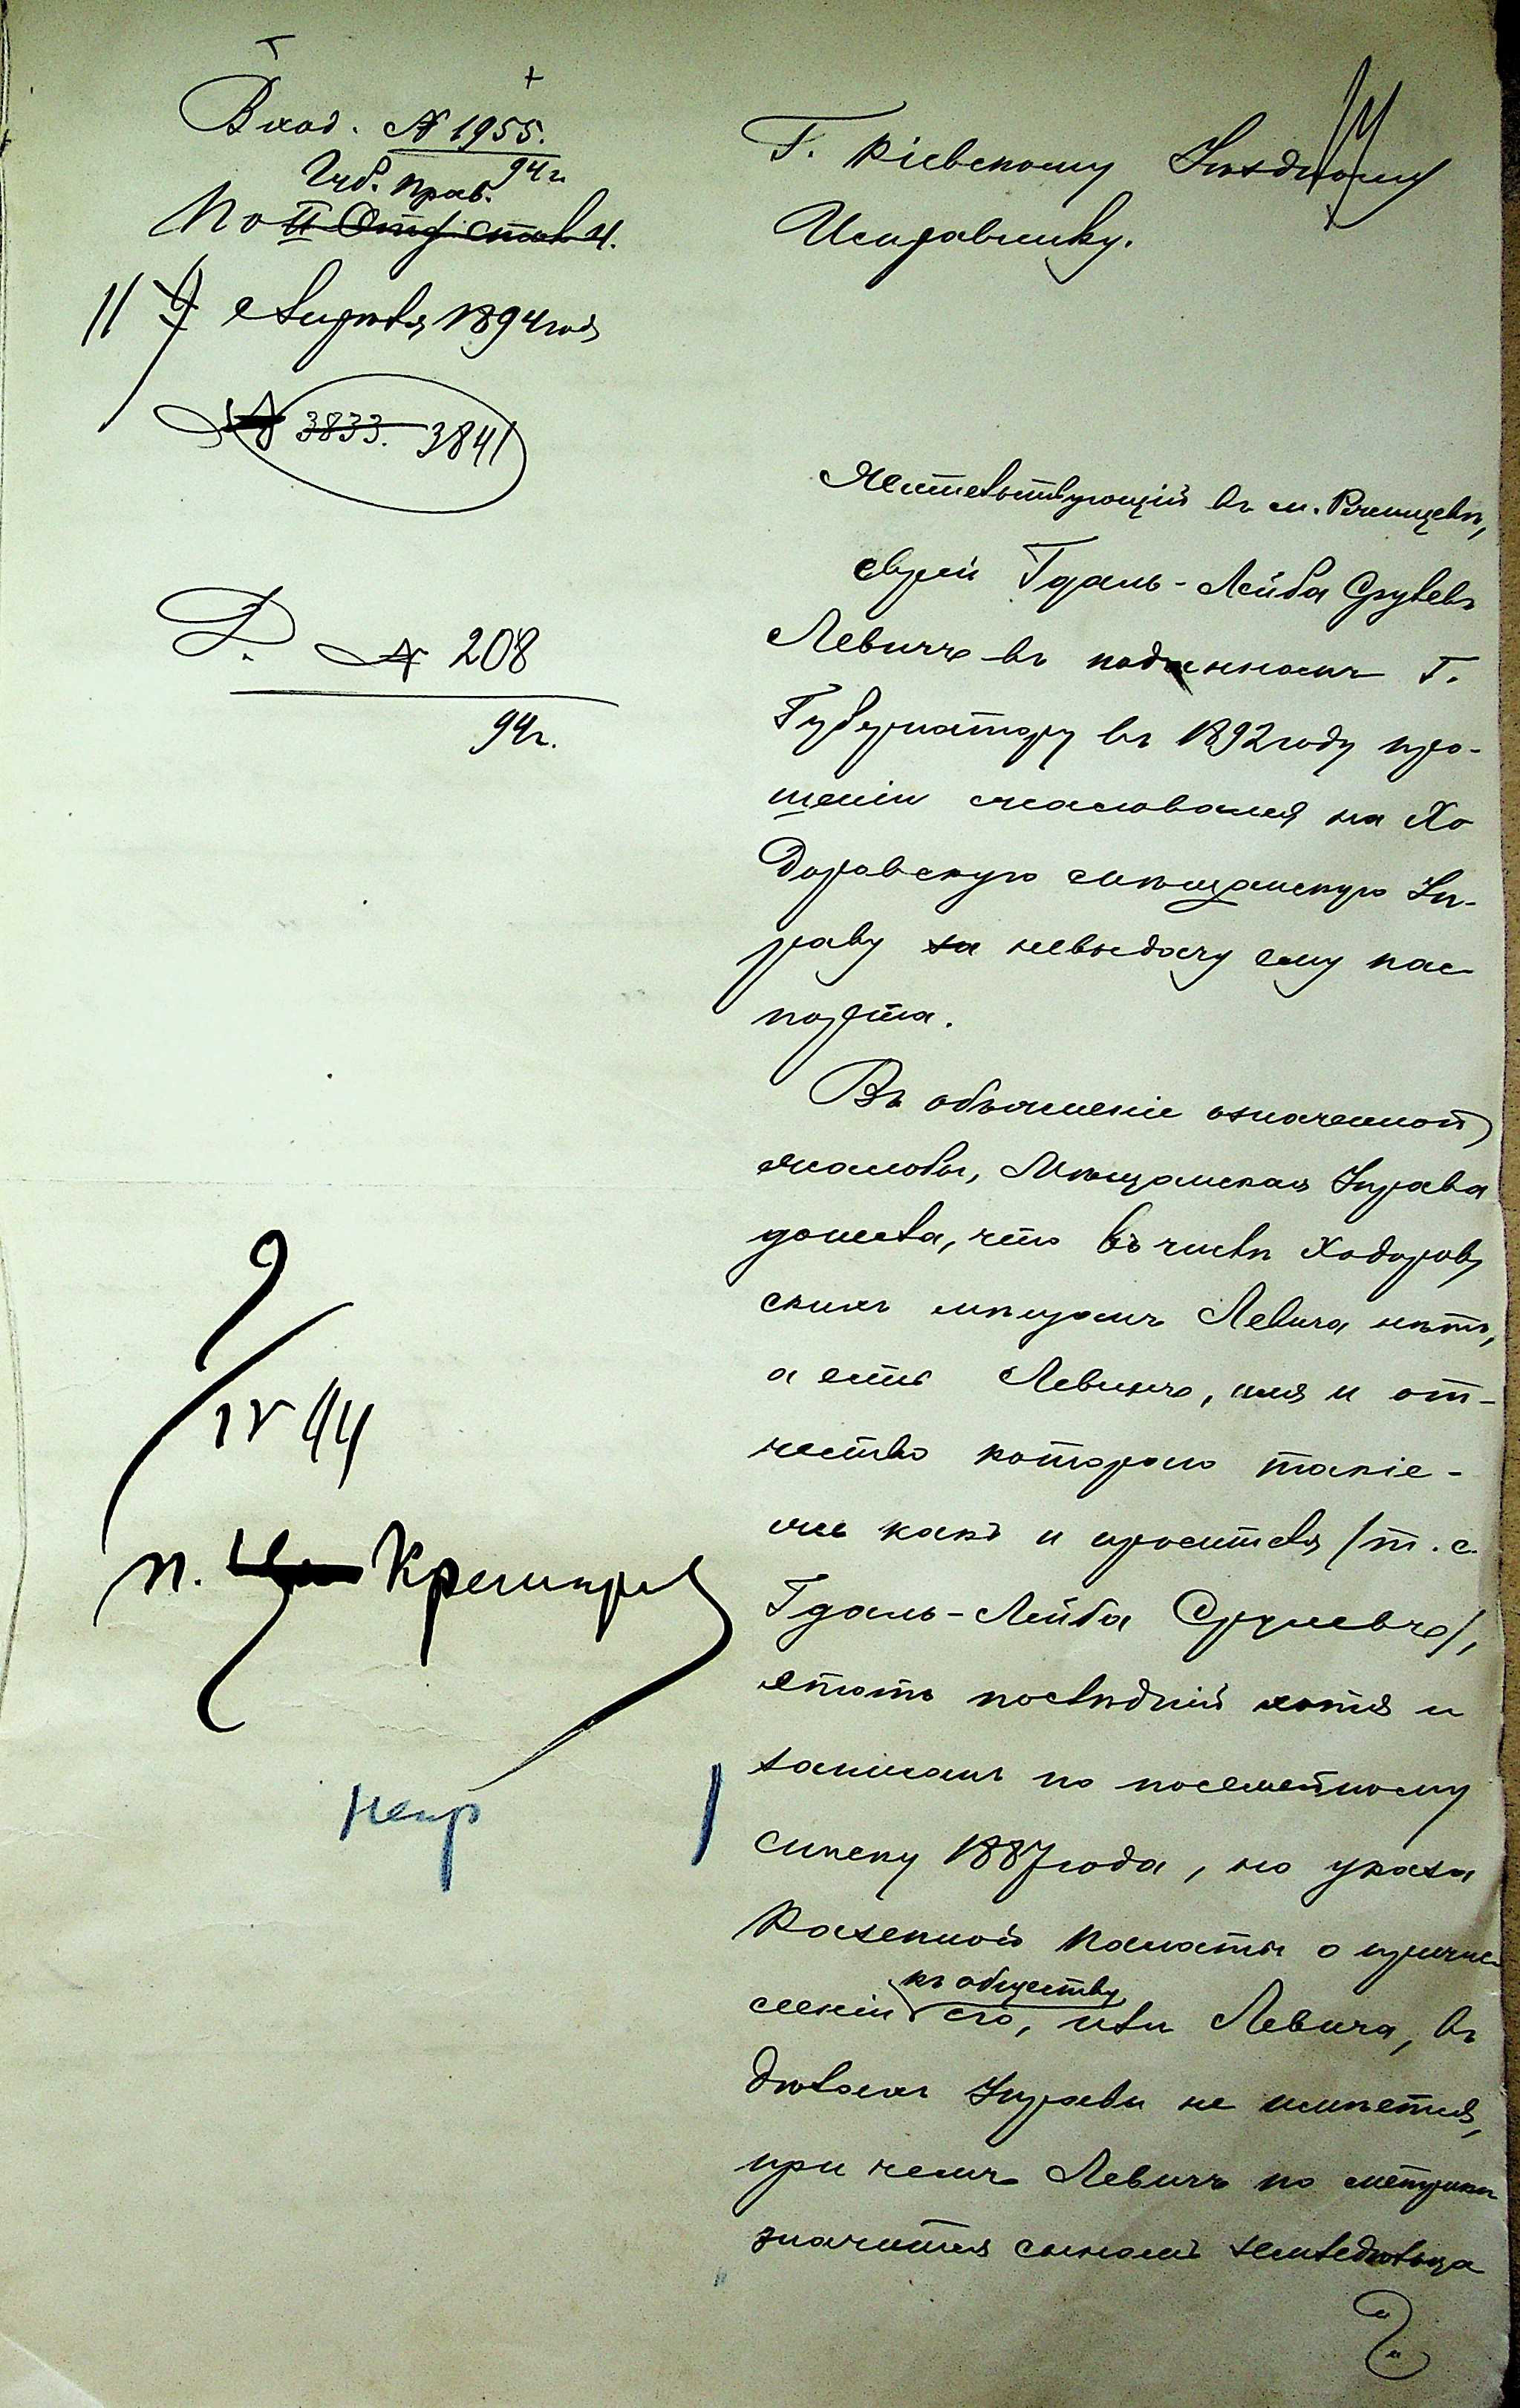 Вход. № 1955.
94 г.
Губ. Прав.
По II Отд. стол 4.
11 9 Апрѣля 1894 года
№ 3833. 3841
Р. № 208
94 г.
9
IV 94
п.
Непр
Г. Кіевскому Уѣздному
Исправнику.
Жительствующій въ м. Ржищевѣ,
еврей Гдаль-Лейба Срулевъ
Левичъ въ поданномъ Г.
Губернатору въ 1892 году про-
шеніи жаловался на Хо
доровскую мѣщанскую Уп-
раву за невыдачу ему пас-
порта.
Въ объясненіе означенной
жалобы, Мѣщанская Управа
донесла, что въ числѣ Ходоров
скихъ мѣщанъ Левича нѣтъ,
а есть Левинъ, имя и от-
чество котораго такіе-
же какъ и просителя /т. е.
Гдаль-Лейба Срулевъ/,
этотъ послѣдній хотя и
записанъ по посемейному
списку 1887 года, но указа
Казенной Палаты о причис
къ обществу
леніи его, или Левича, въ
дѣлахъ Управы не имѣется,
при чемъ Левичъ по метрикѣ
значится сыномъ земледѣльца